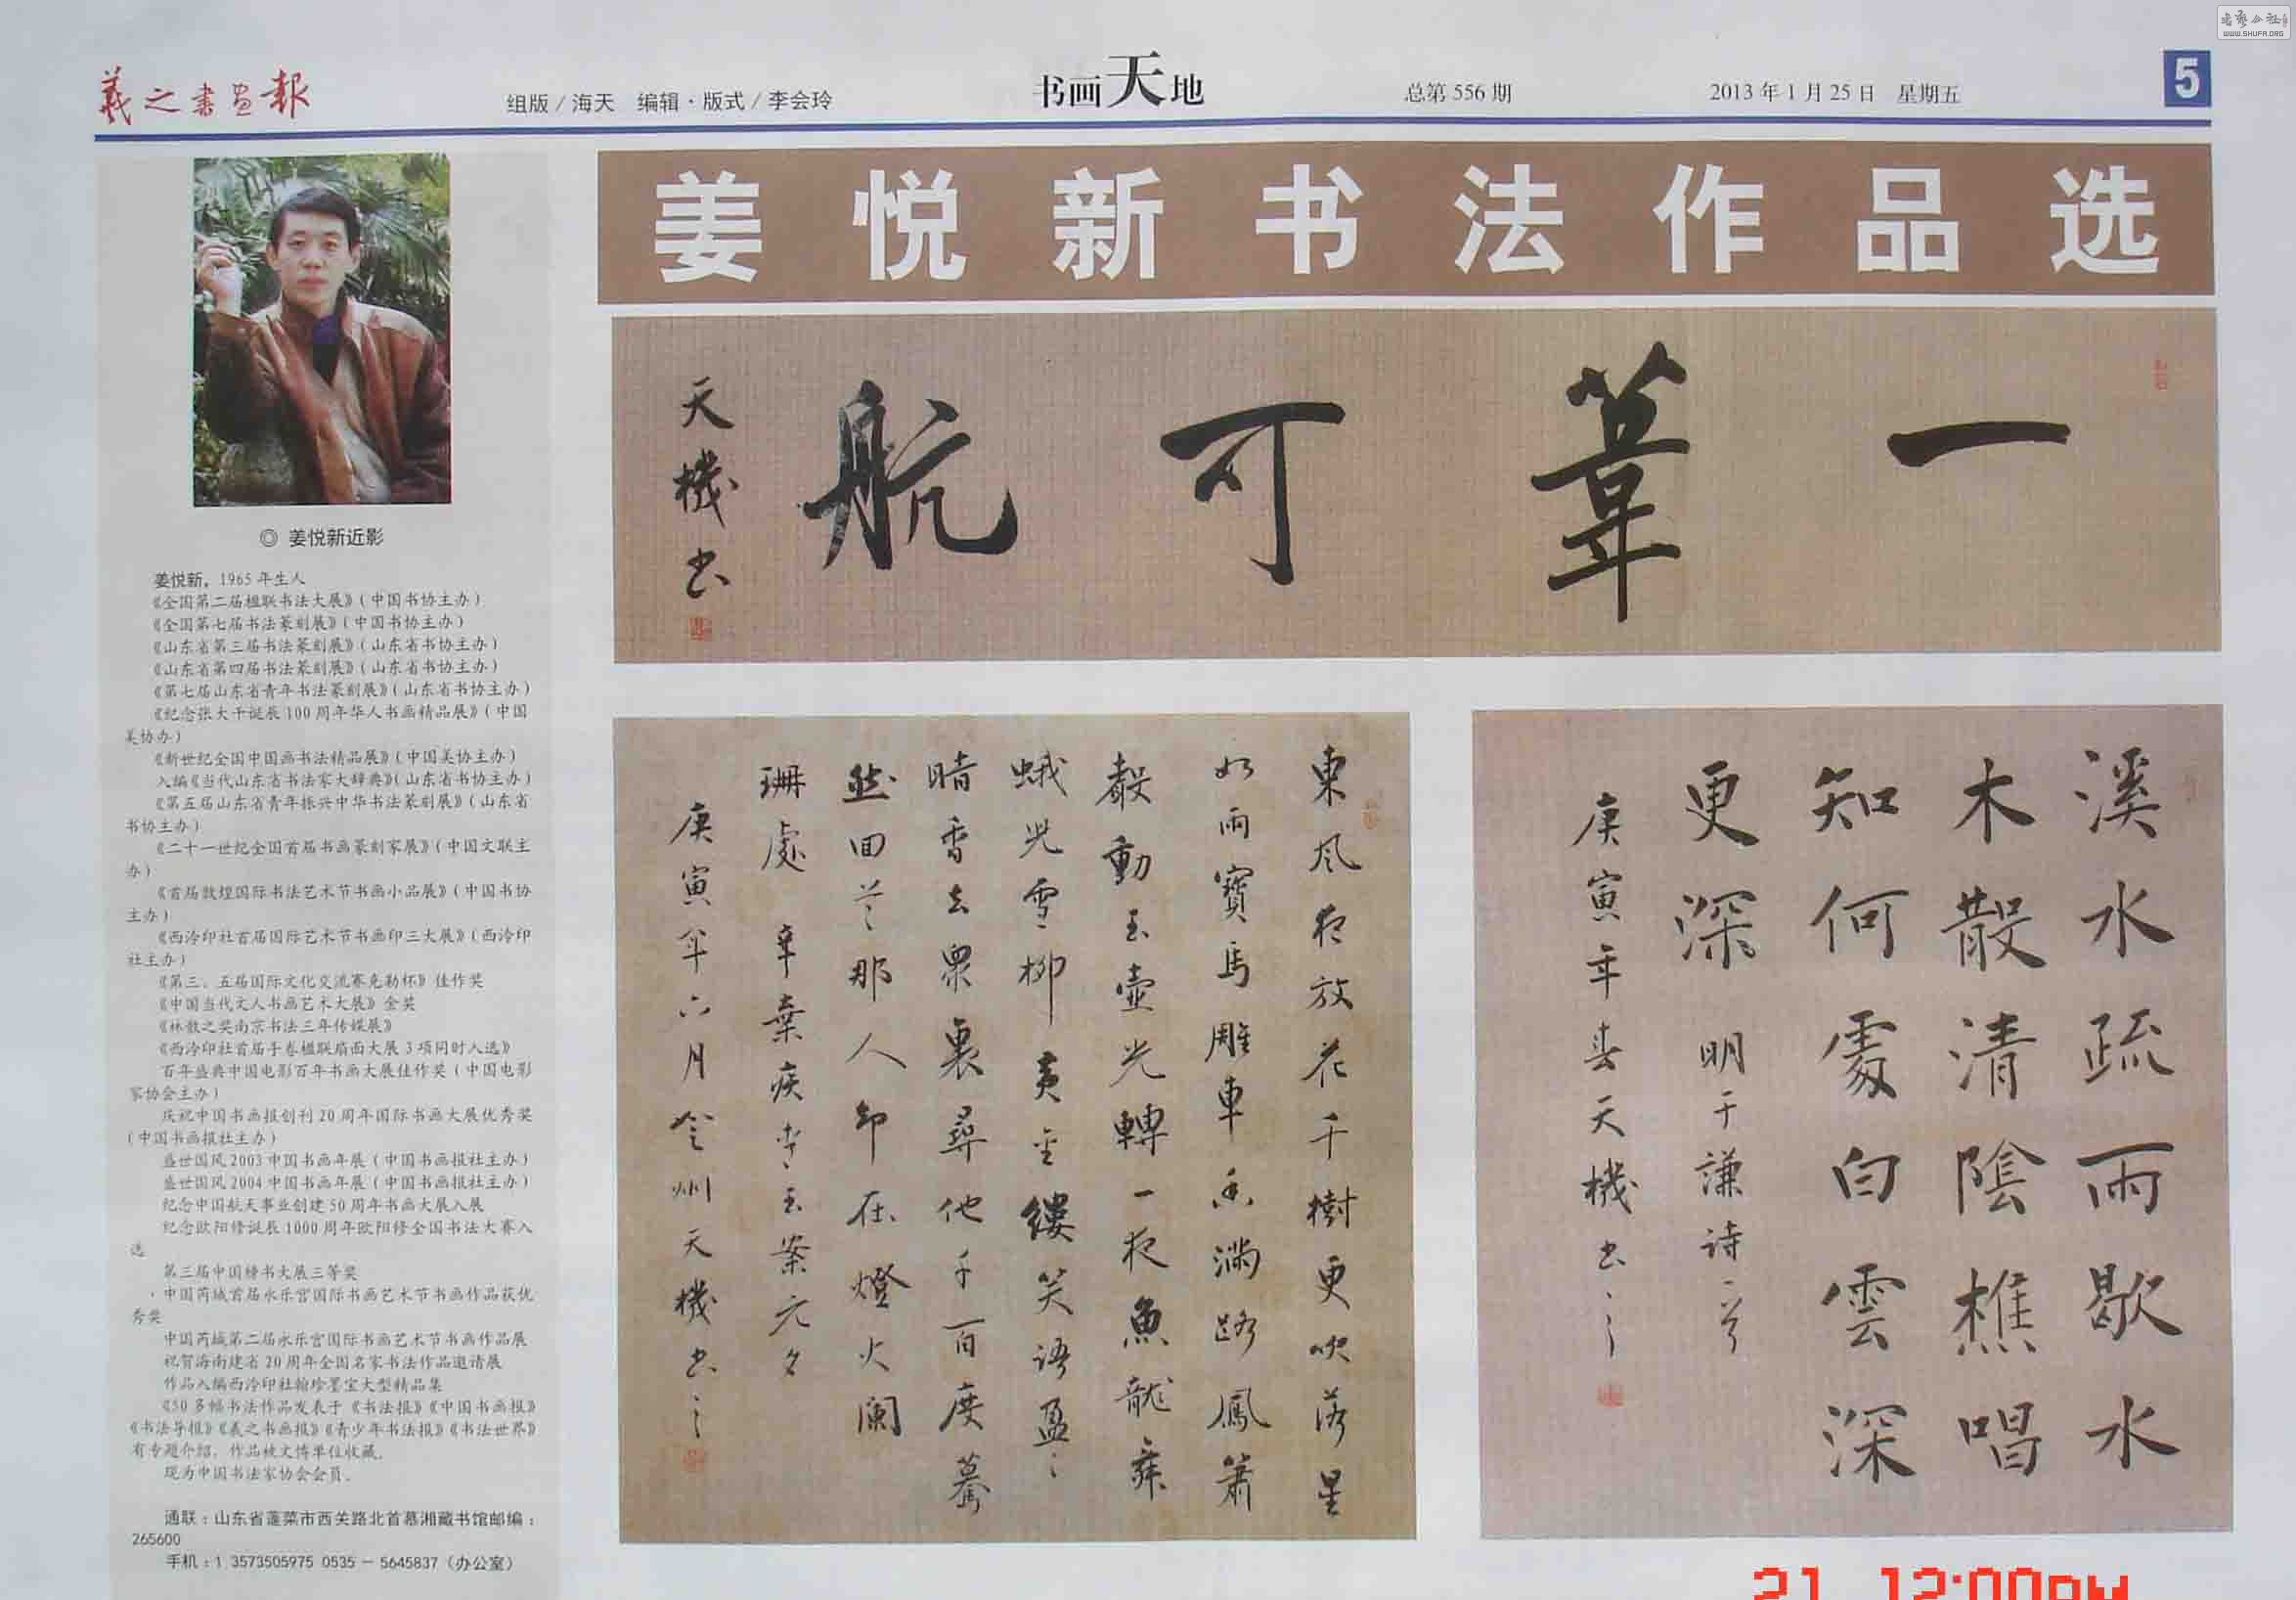 羲之書画報
组版/海天　编辑·版式/李会玲
书画天地
总第 556 期
2013 年 1 月 25 日　星期五
5
姜悦新书法作品选
◎ 姜悦新近影
姜悦新，1965 年生人
《全国第二届楹联书法大展》（中国书协主办）
《全国第七届书法篆刻展》（中国书协主办）
《山东省第三届书法篆刻展》（山东省书协主办）
《山东省第四届书法篆刻展》（山东省书协主办）
《第七届山东省青年书法篆刻展》（山东省书协主办）
《纪念张大千诞辰 100 周年华人书画精品展》（中国
美协办）
《新世纪全国中国画书法精品展》（中国美协主办）
入编《当代山东省书法家大辞典》（山东省书协主办）
《第五届山东省青年振兴中华书法篆刻展》（山东省
书协主办）
《二十一世纪全国首届书画篆刻家展》（中国文联主
办）
《首届敦煌国际书法艺术节书画小品展》（中国书协
主办）
《西泠印社首届国际艺术节书画印三大展》（西泠印
社主办）
《第三、五届国际文化交流赛克勒杯》佳作奖
《中国当代文人书画艺术大展》金奖
《林散之奖南京书法三年传媒展》
《西泠印社首届手卷楹联扇面大展 3 项同时入选》
百年盛典中国电影百年书画大展佳作奖（中国电影
家协会主办）
庆祝中国书画报创刊 20 周年国际书画大展优秀奖
（中国书画报社主办）
盛世国风 2003 中国书画年展（中国书画报社主办）
盛世国风 2004 中国书画年展（中国书画报社主办）
纪念中国航天事业创建 50 周年书画大展入展
纪念欧阳修诞辰 1000 周年欧阳修全国书法大赛入
选
第三届中国榜书大展三等奖
·中国芮城首届永乐宫国际书画艺术节书画作品获优
秀奖
中国芮城第二届永乐宫国际书画艺术节书画作品展
祝贺海南建省 20 周年全国名家书法作品邀请展
作品入编西泠印社翰珍墨宝大型精品集
《50 多幅书法作品发表于《书法报》《中国书画报》
《书法导报》《羲之书画报》《青少年书法报》《书法世界》
有专题介绍，作品被文博单位收藏。
现为中国书法家协会会员。
通联：山东省蓬莱市西关路北首慕湘藏书馆邮编：
265600
手机：1 3573505975 0535 — 5645837（办公室）
一葦可航
天機书
溪水疏雨歇水
木散清陰樵唱
知何處白雲深
更深　明于謙诗一首
庚寅年春天機书之
東风夜放花千樹更吹落星
如雨寶馬雕車香满路鳳箫
聲動玉壶光轉一夜魚龍舞
蛾児雪柳黄金缕笑語盈〻
暗香去眾裏尋他千百度驀
然回首那人却在燈火阑
珊處　辛棄疾青玉案元夕
庚寅年六月登州天機书之
21 12:00PM
WWW.SHUFA.ORG